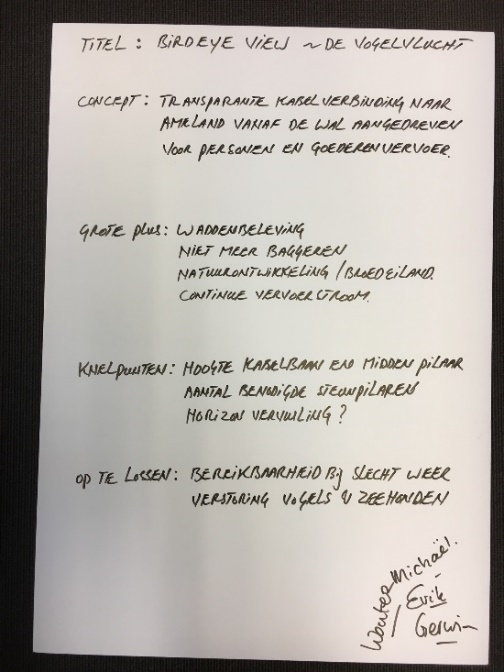 TITEL : BIRDEYE VIEW ~ DE VOGELVLUCHT
CONCEPT : TRANSPARANTE KABELVERBINDING NAAR
AMELAND VANAF DE WAL AANGEDREVEN
VOOR PERSONEN EN GOEDERENVERVOER.
GROTE PLUS : WADDENBELEVING
NIET MEER BAGGEREN
NATUURONTWIKKELING / BROEDEILAND.
CONTINUE VERVOERSTROOM.
KNELPUNTEN : HOOGTE KABELBAAN EN MIDDEN PILAAR
AANTAL BENODIGDE STEUNPILAREN
HORIZON VERVUILING ?
OP TE LOSSEN : BEREIKBAARHEID BIJ SLECHT WEER
VERSTORING VOGELS & ZEEHONDEN
Wouter Michaël.
Erik
Gerwin